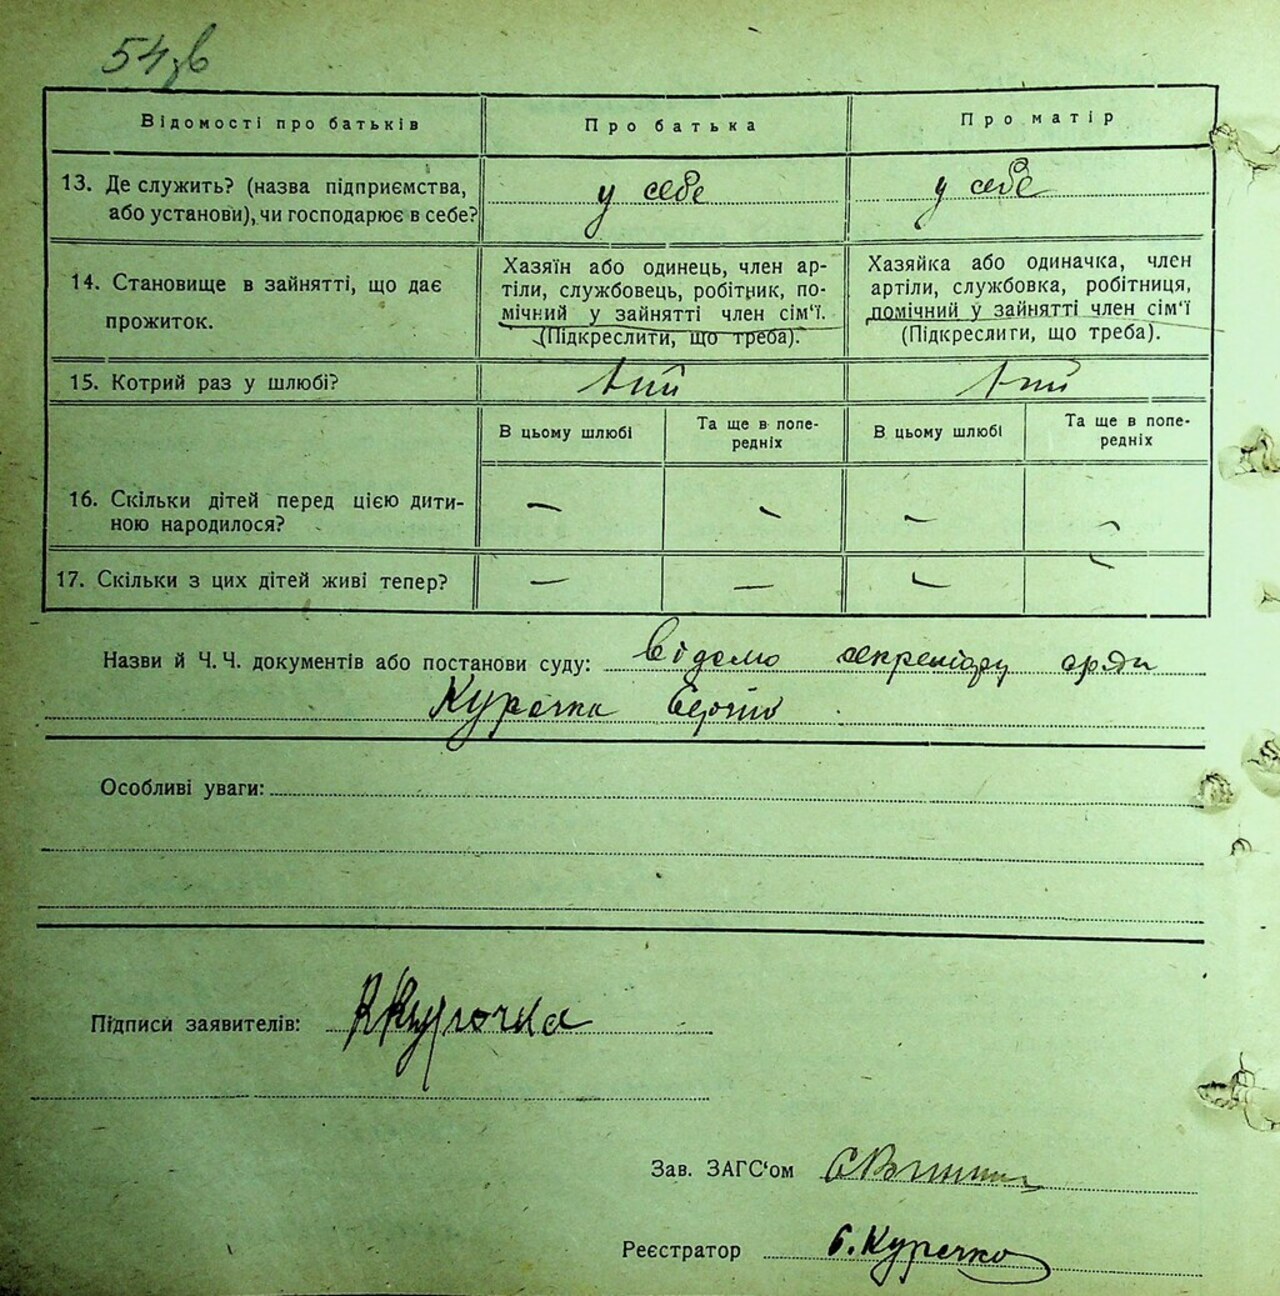 54зв
Відомості про батьків
Про батька
Про матір
13. Де служить? (назва підприємства,
або установи), чи господарює в себе?
у себе
у себе
14. Становище в зайнятті, що дає
прожиток.
Хазяїн або одинець, член ар-
тіли, службовець, робітник, по-
мічний у зайнятті член сім'ї.
(Підкреслити, що треба).
Хазяйка або одиначка, член
артіли, службовка, робітниця,
помічний у зайнятті член сім'ї
(Підкреслити, що треба).
15. Котрий раз у шлюбі?
1-ший
1-ший
В цьому шлюбі
Та ще в попе-
редніх
В цьому шлюбі
Та ще в попе-
редніх
16. Скільки дітей перед цією дити-
ною народилося?
—
—
—
—
17. Скільки з цих дітей живі тепер?
—
—
—
—
Назви й Ч. Ч. документів або постанови суду: Відомо секретарю
Курочка
Особливі уваги:
Підписи заявителів: Курочка
Зав. ЗАГС'ом
Реєстратор Є. Курочко